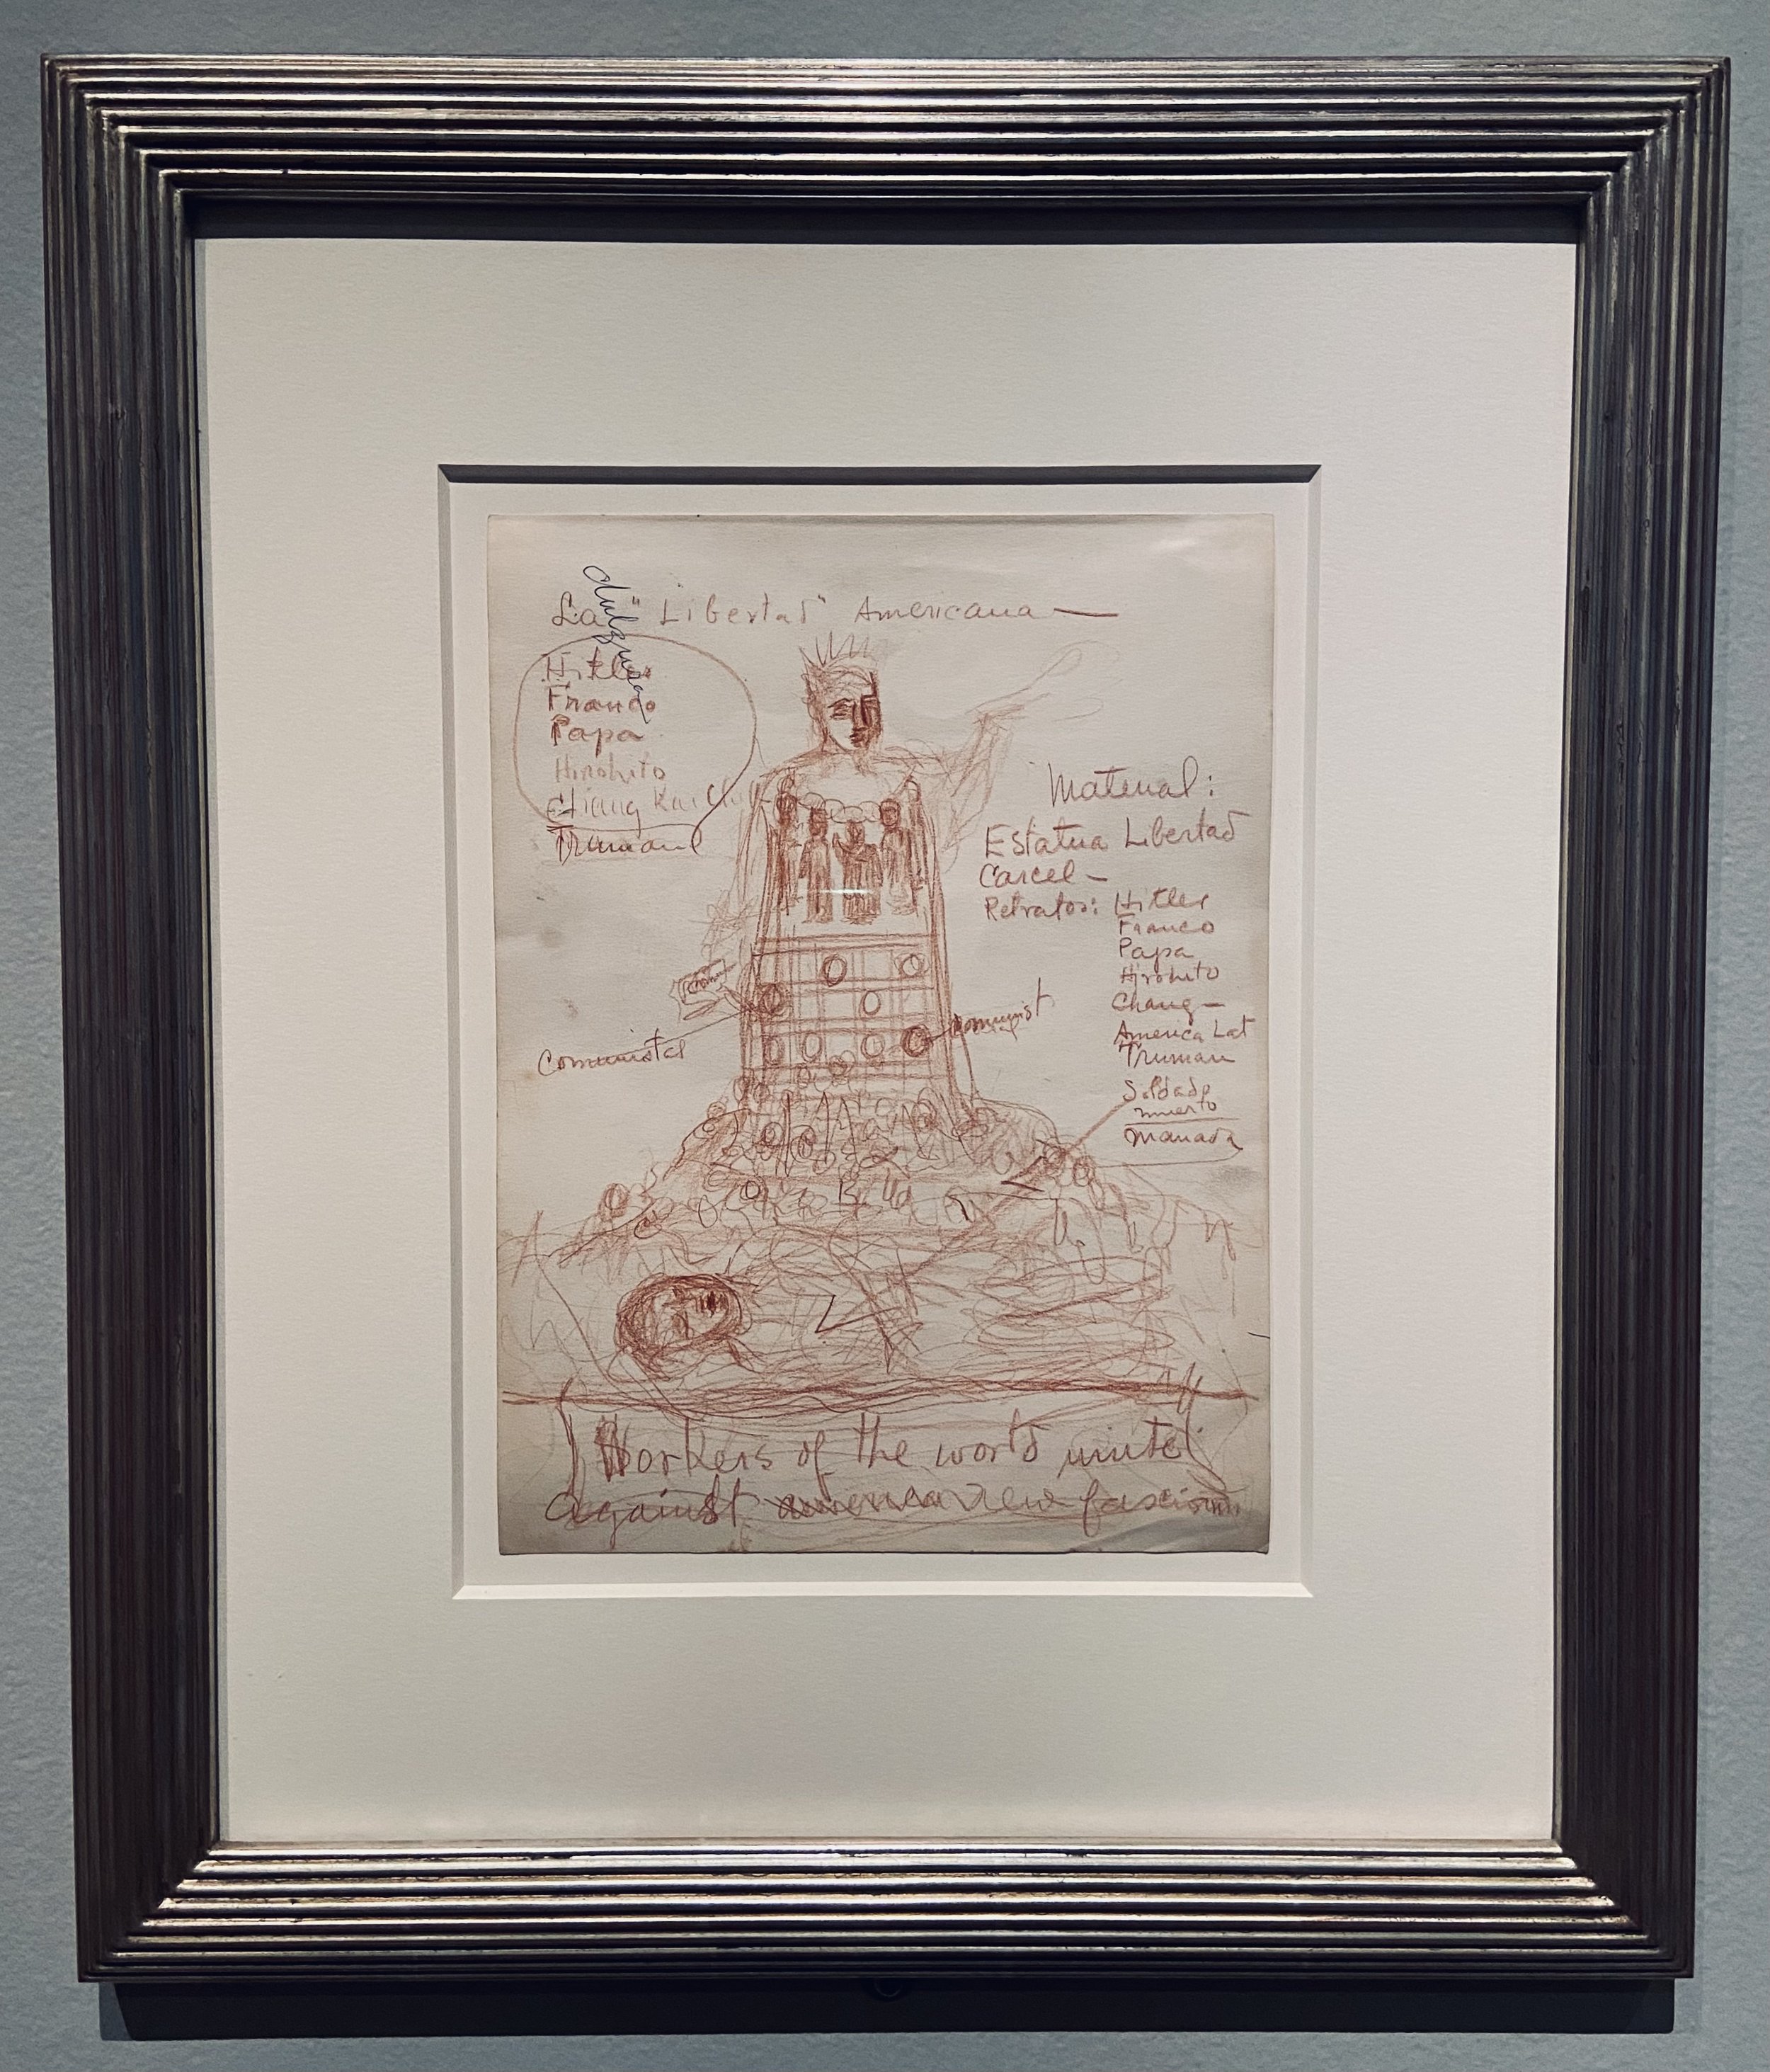 La "Libertad" Americana —
Hitler
Franco
Papa
Hirohito
Chiang Kai
Truman
Material:
Estatua Libertad
Carcel —
Retratos: Hitler
Franco
Papa
Hirohito
Chang —
America Lat
Truman
Soldado
muerto
manada
Comunistas
Comunist
Workers of the world unite!
against america new fascism